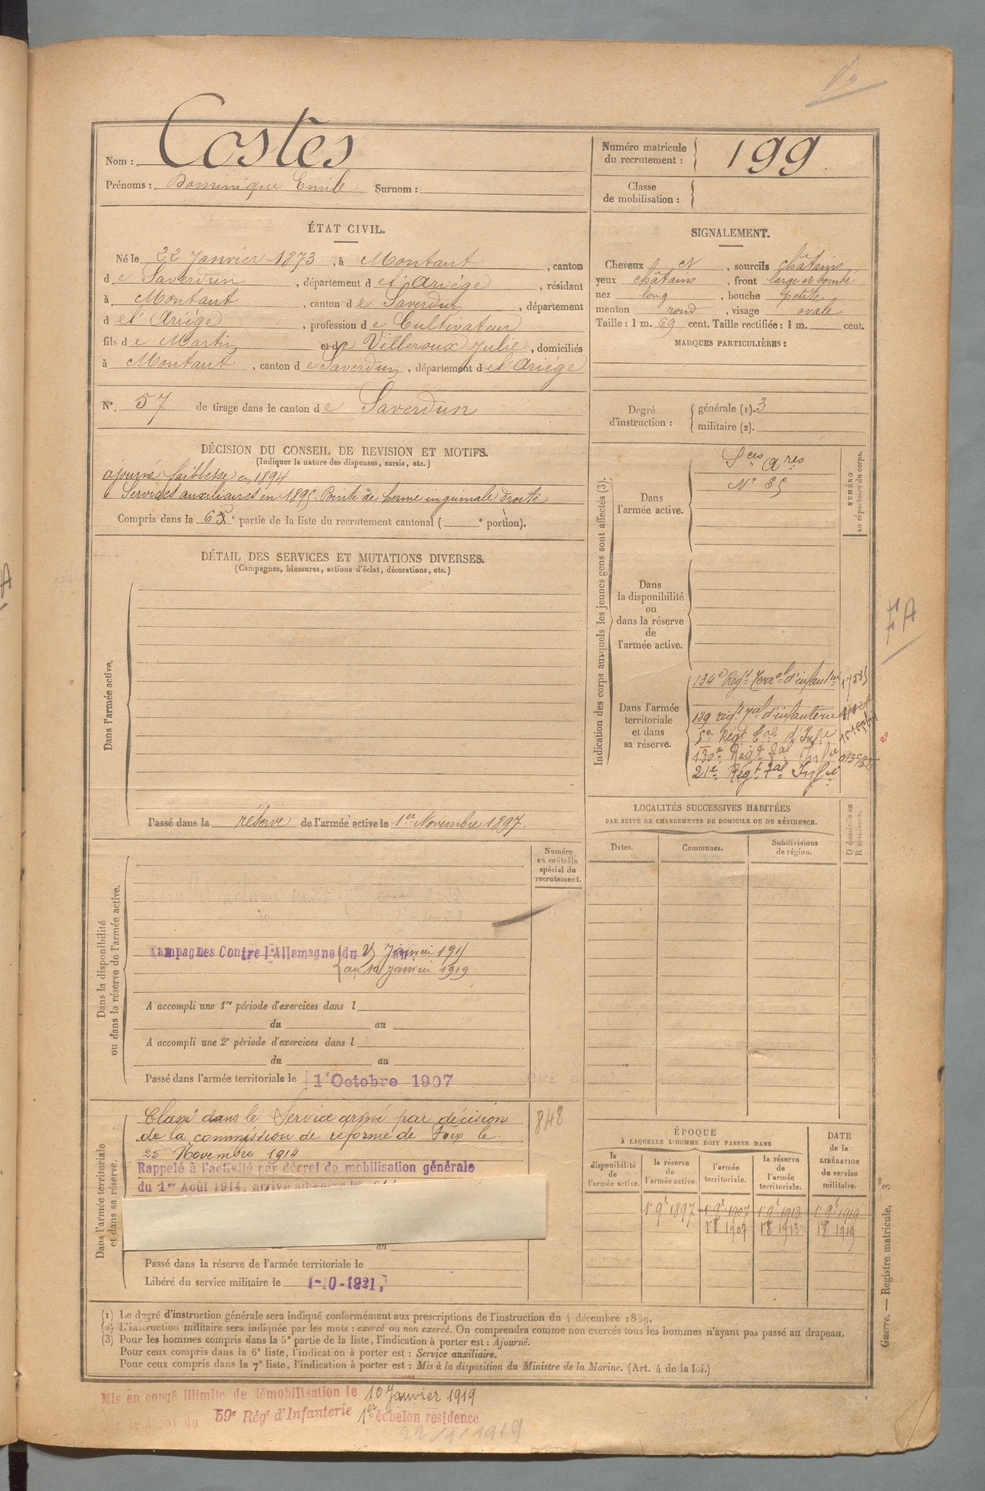 Nom : Costes
Prénoms : Dominique Emile Surnom :
Numéro matricule du recrutement : 199
Classe de mobilisation :
ÉTAT CIVIL.
Né le 22 Janvier 1873, à Montaut, canton
de Saverdun, département de l'Ariège, résidant
à Montaut, canton de Saverdun, département
de l'Ariège, profession de Cultivateur
fils de Martin et de Villeroux Julie, domiciliés
à Montaut, canton de Saverdun, département de l'Ariège
N°. 57 de tirage dans le canton de Saverdun
SIGNALEMENT.
Cheveux ch N, sourcils châtains
yeux châtains, front large et bombé
nez long, bouche petite
menton rond, visage ovale
Taille : 1 m. 69 cent. Taille rectifiée : 1 m. cent.
MARQUES PARTICULIÈRES :
Degré d'instruction : générale (1). 3
militaire (2).
DÉCISION DU CONSEIL DE REVISION ET MOTIFS.
(Indiquer la nature des dispenses, sursis, etc.)
ajourné faiblesse en 1894
Services auxiliaires en 1895. Pointe de hernie inguinale droite
Compris dans la 6e partie de la liste du recrutement cantonal ( e portion).
DÉTAIL DES SERVICES ET MUTATIONS DIVERSES.
(Campagnes, blessures, actions d'éclat, décorations, etc.)
Dans l'armée active.
Passé dans la réserve de l'armée active le 1er Novembre 1897.
Indication des corps auxquels les jeunes gens sont affectés (3).
NUMÉRO au répertoire du corps.
Dans l'armée active.
Sces Ares
N° 65
Dans la disponibilité ou dans la réserve de l'armée active.
Dans l'armée territoriale et dans sa réserve.
134e Regt Terral d'infanterie
139 regt d'infanterie
5e Regt Cal d'Infie
130e Regt Tal Infie
21e Regt Tal Infie
LOCALITÉS SUCCESSIVES HABITÉES
PAR SUITE DE CHANGEMENTS DE DOMICILE OU DE RÉSIDENCE.
Dates.
Communes.
Subdivisions de région.
D domicile ou R résidence.
Dans la disponibilité ou dans la réserve de l'armée active.
Numéro au contrôle spécial du recrutement.
Campagnes Contre l'Allemagne du
au 10 Janvier 1919
A accompli une 1re période d'exercices dans l
du au
A accompli une 2e période d'exercices dans l
du au
Passé dans l'armée territoriale le 1er Octobre 1907
Dans l'armée territoriale et dans sa réserve.
848
Classé dans le Service armé par décision
de la commission de réforme de Foix le
25 Novembre 1914
Rappelé à l'activité par décret de mobilisation générale
du 1er Août 1914, arrivé au corps le
au
Passé dans la réserve de l'armée territoriale le
Libéré du service militaire le 1-10-1921,
ÉPOQUE
À LAQUELLE L'HOMME DOIT PASSER DANS
la disponibilité de l'armée active.
la réserve de l'armée active.
l'armée territoriale.
la réserve de l'armée territoriale.
DATE de la LIBÉRATION du service militaire.
1 9e 1897 1 9e 1907 1 9e 1913 1 9e 1919
1 8 1907 1 8 1913 1 8 1919
Guerre. — Registre matricule. 3
(1) Le degré d'instruction générale sera indiqué conformément aux prescriptions de l'instruction du 4 décembre 1889.
(2) L'instruction militaire sera indiquée par les mots : exercé ou non exercé. On comprendra comme non exercés tous les hommes n'ayant pas passé au drapeau.
(3) Pour les hommes compris dans la 5e partie de la liste, l'indication à porter est : Ajourné.
Pour ceux compris dans la 6e liste, l'indication à porter est : Service auxiliaire.
Pour ceux compris dans la 7e liste, l'indication à porter est : Mis à la disposition du Ministre de la Marine. (Art. 4 de la loi.)
Mis en congé illimité de démobilisation le 10 Janvier 1919
par le dépôt du 59e Régt d'Infanterie 1er échelon résidence
22/1/1919
FA